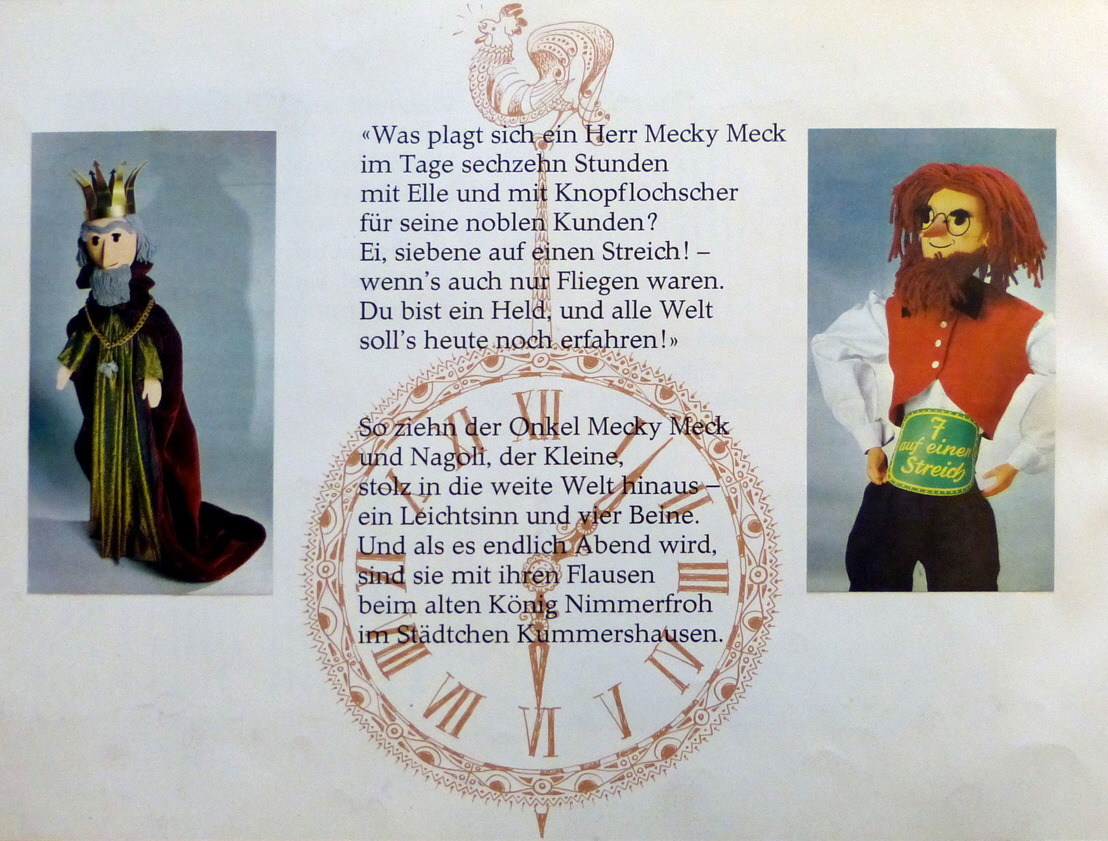 «Was plagt sich ein Herr Mecky Meck
im Tage sechzehn Stunden
mit Elle und mit Knopflochscher
für seine noblen Kunden?
Ei, siebene auf einen Streich! –
wenn's auch nur Fliegen waren.
Du bist ein Held, und alle Welt
soll's heute noch erfahren!»
So ziehn der Onkel Mecky Meck
und Nagoli, der Kleine,
stolz in die weite Welt hinaus –
ein Leichtsinn und vier Beine.
Und als es endlich Abend wird,
sind sie mit ihren Flausen
beim alten König Nimmerfroh
im Städtchen Kummershausen.
7
auf einen
Streich
XII
III
IIII
V
VI
VII
VIII